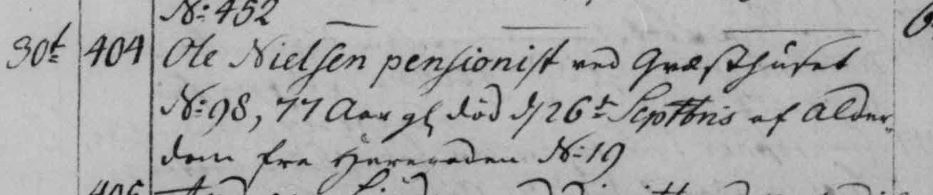 No: 452
30t 404 Ole Nielsen pensionist ved Qvæsthuset
No: 98, 77 Aar gl død d 26t Septbris af Alder-
dom fra No: 19